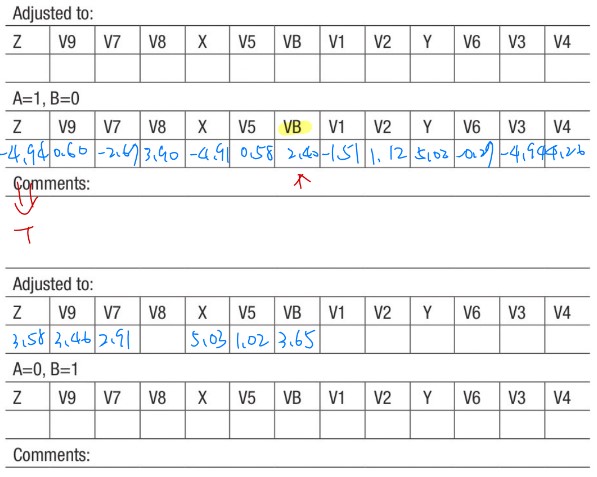 Adjusted to:
Z V9 V7 V8 X V5 VB V1 V2 Y V6 V3 V4
A=1, B=0
Z V9 V7 V8 X V5 VB V1 V2 Y V6 V3 V4
-4.94 0.60 -2.67 3.90 -4.91 0.58 2.40 -1.51 1.12 5.02 -0.27 -4.94 4.26
Comments:
T
Adjusted to:
Z V9 V7 V8 X V5 VB V1 V2 Y V6 V3 V4
3.58 3.46 2.91 5.03 1.02 3.65
A=0, B=1
Z V9 V7 V8 X V5 VB V1 V2 Y V6 V3 V4
Comments: